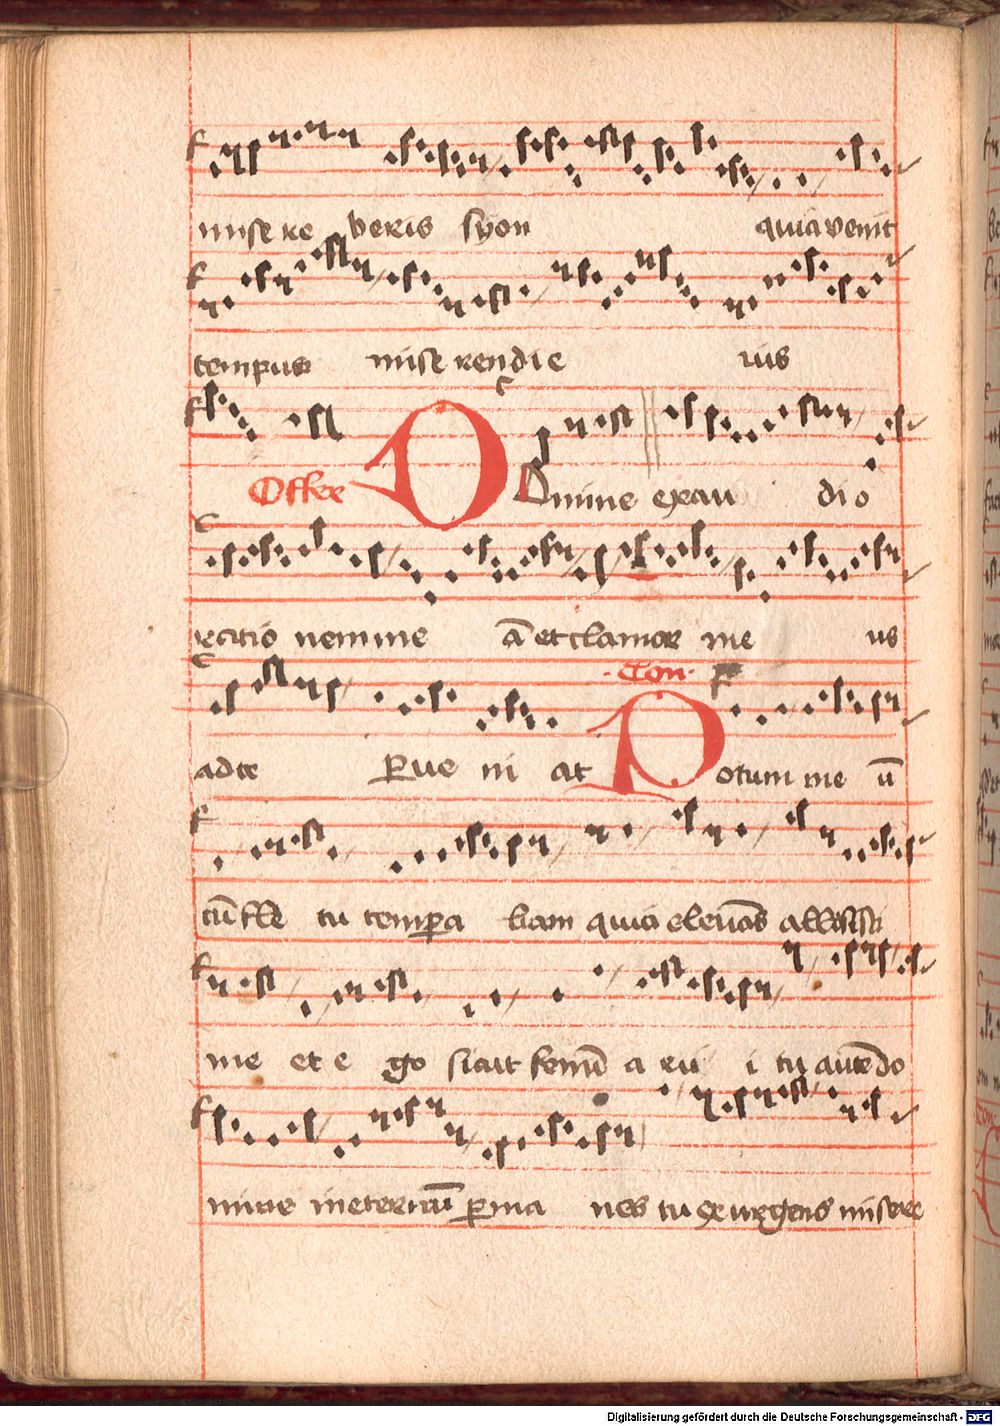 misere beris syon quia venit
tempus miserendi e ius
Offer Domine exau di o
rcatio nem me ā et clamor me us
ad te perue ni at
Con Potum me ū
cū fle tu tempera bam quia eleuās allisisti
me et e go sicut fenū a rui i tu autē do
mine in eternū perma nes tu exurgens misere
Digitalisierung gefördert durch die Deutsche Forschungsgemeinschaft - DFG